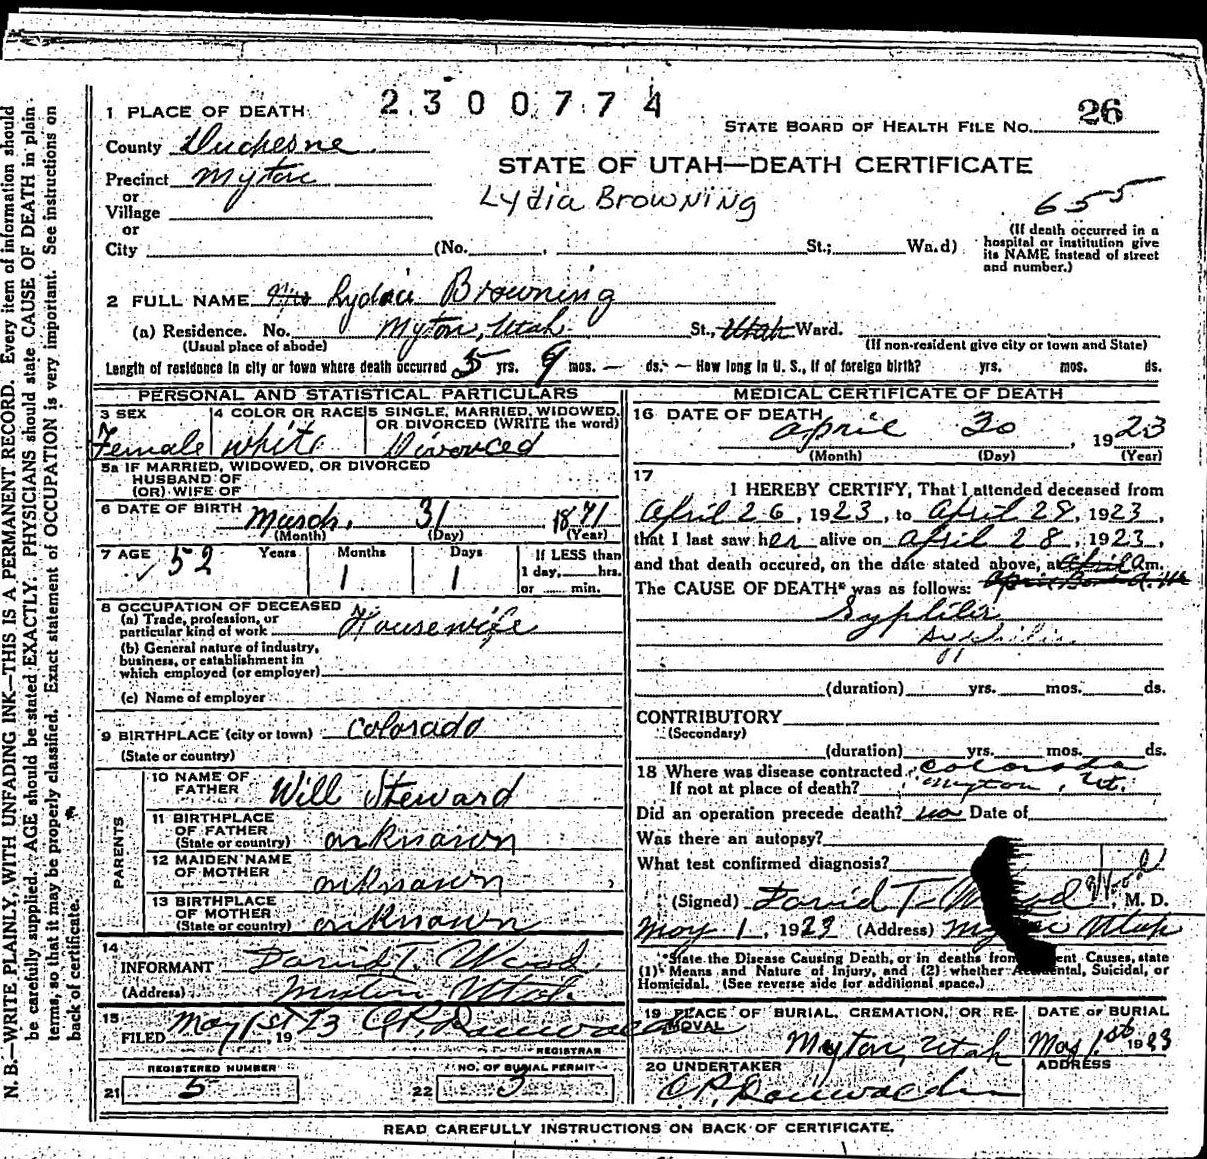 2300774
26
1 PLACE OF DEATH
STATE BOARD OF HEALTH FILE NO.
County Duchesne
STATE OF UTAH—DEATH CERTIFICATE
Precinct Myton
Lydia Browning
or
Village
655
or
City (No. , St.; Ward)
(If death occurred in a
hospital or institution give
its NAME instead of street
and number.)
2 FULL NAME Mrs Lydia Browning
(a) Residence. No. Myton, Utah St., Utah Ward.
(Usual place of abode) (If non-resident give city or town and State)
Length of residence in city or town where death occurred 5 yrs. 9 mos. — ds. — How long in U. S., if of foreign birth? yrs. mos. ds.
PERSONAL AND STATISTICAL PARTICULARS
3 SEX 4 COLOR OR RACE 5 SINGLE, MARRIED, WIDOWED,
OR DIVORCED (WRITE the word)
Female white Divorced
5a IF MARRIED, WIDOWED, OR DIVORCED
HUSBAND OF
(OR) WIFE OF
6 DATE OF BIRTH March 31 1871
(Month) (Day) (Year)
7 AGE 52 Years 1 Months 1 Days If LESS than
1 day, hrs.
or min.
8 OCCUPATION OF DECEASED
(a) Trade, profession, or
particular kind of work Housewife
(b) General nature of industry,
business, or establishment in
which employed (or employer)
(c) Name of employer
9 BIRTHPLACE (city or town) Colorado
(State or country)
PARENTS
10 NAME OF
FATHER Will Steward
11 BIRTHPLACE
OF FATHER
(State or country) unknown
12 MAIDEN NAME
OF MOTHER unknown
13 BIRTHPLACE
OF MOTHER
(State or country) unknown
14
INFORMANT David T. Wood
(Address) Myton Utah.
15
FILED May 1st, 1923
REGISTRAR
REGISTERED NUMBER NO. OF BURIAL PERMIT
21 5 22 3
MEDICAL CERTIFICATE OF DEATH
16 DATE OF DEATH
April 30, 1923
(Month) (Day) (Year)
17
I HEREBY CERTIFY, That I attended deceased from
April 26, 1923, to April 28, 1923,
that I last saw her alive on April 28, 1923,
and that death occured, on the date stated above, at m.
The CAUSE OF DEATH* was as follows:
Syphilis
Syphilis
(duration) yrs. mos. ds.
CONTRIBUTORY
(Secondary)
(duration) yrs. mos. ds.
18 Where was disease contracted Colorado
If not at place of death? Myton, Ut.
Did an operation precede death? no Date of
Was there an autopsy?
What test confirmed diagnosis?
(Signed) David T. Wood M. D.
May 1, 1923 (Address) Myton Utah
*State the Disease Causing Death, or in deaths from Causes, state
(1) Means and Nature of Injury, and (2) whether Accidental, Suicidal, or
Homicidal. (See reverse side for additional space.)
19 PLACE OF BURIAL, CREMATION, OR RE-
MOVAL
Myton, Utah
DATE OF BURIAL
May 1st 1923
20 UNDERTAKER
ADDRESS
READ CAREFULLY INSTRUCTIONS ON BACK OF CERTIFICATE.
N. B.—WRITE PLAINLY, WITH UNFADING INK—THIS IS A PERMANENT RECORD. Every item of information should
be carefully supplied. AGE should be stated EXACTLY. PHYSICIANS should state CAUSE OF DEATH in plain
terms, so that it may be properly classified. Exact statement of OCCUPATION is very important. See instructions on
back of certificate.